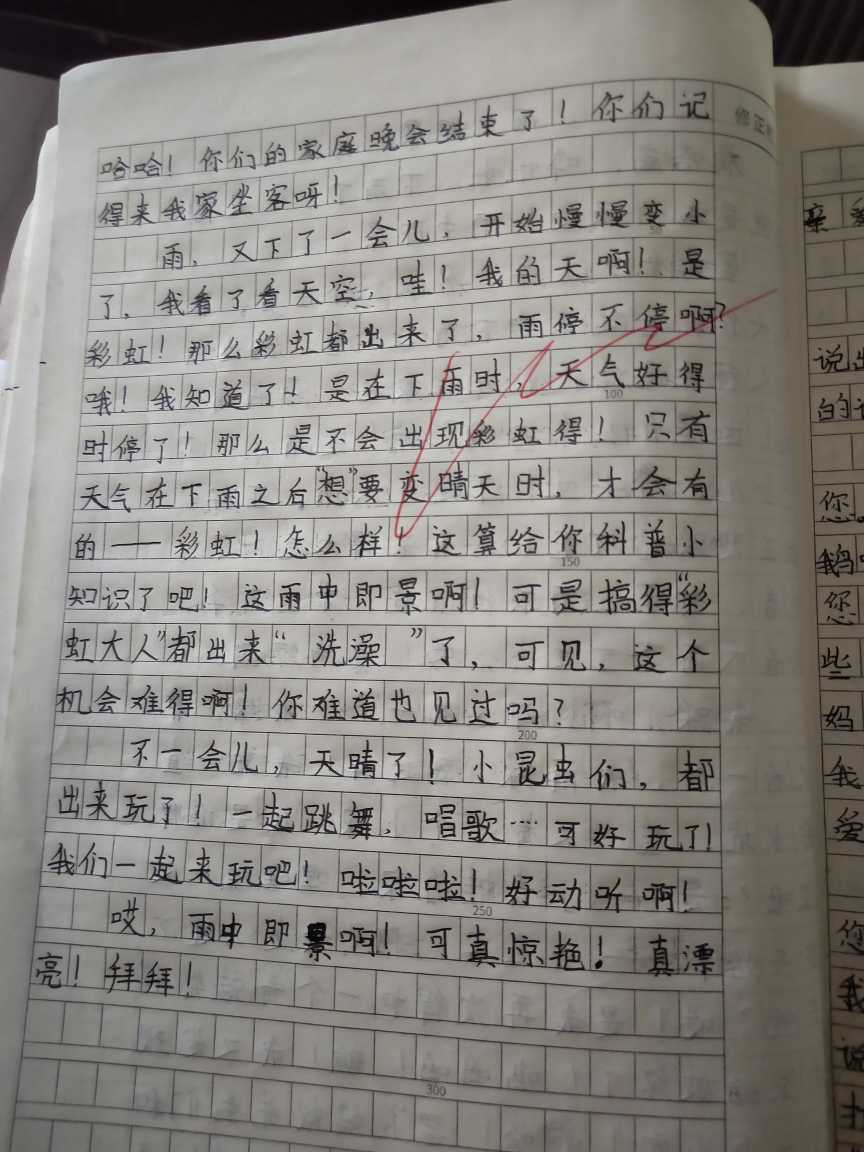 哈哈！你们的家庭晚会结束了！你们记
得来我家坐客呀！
雨，又下了一会儿，开始慢慢变小
了，我看了看天空，哇！我的天啊！是
彩虹！那么彩虹都出来了，雨停不停啊？
哦！我知道了！是在下雨时，天气好得
100
时停了！那么是不会出现彩虹得！只有
天气在下雨之后“想”要变晴天时，才会有
的——彩虹！怎么样！这算给你科普小
150
知识了吧！这雨中即景啊！可是搞得“彩
虹大人”都出来“洗澡”了，可见，这个
机会难得啊！你难道也见过吗？
200
不一会儿，天晴了！小昆虫们，都
出来玩了！一起跳舞，唱歌…可好玩了！
我们一起来玩吧！啦啦啦！好动听啊！
250
哎，雨中即景啊！可真惊艳！真漂
亮！拜拜！
300
修正
亲爱
说出
的
您
鹅
您
些
妈
我
爱
您
我
说